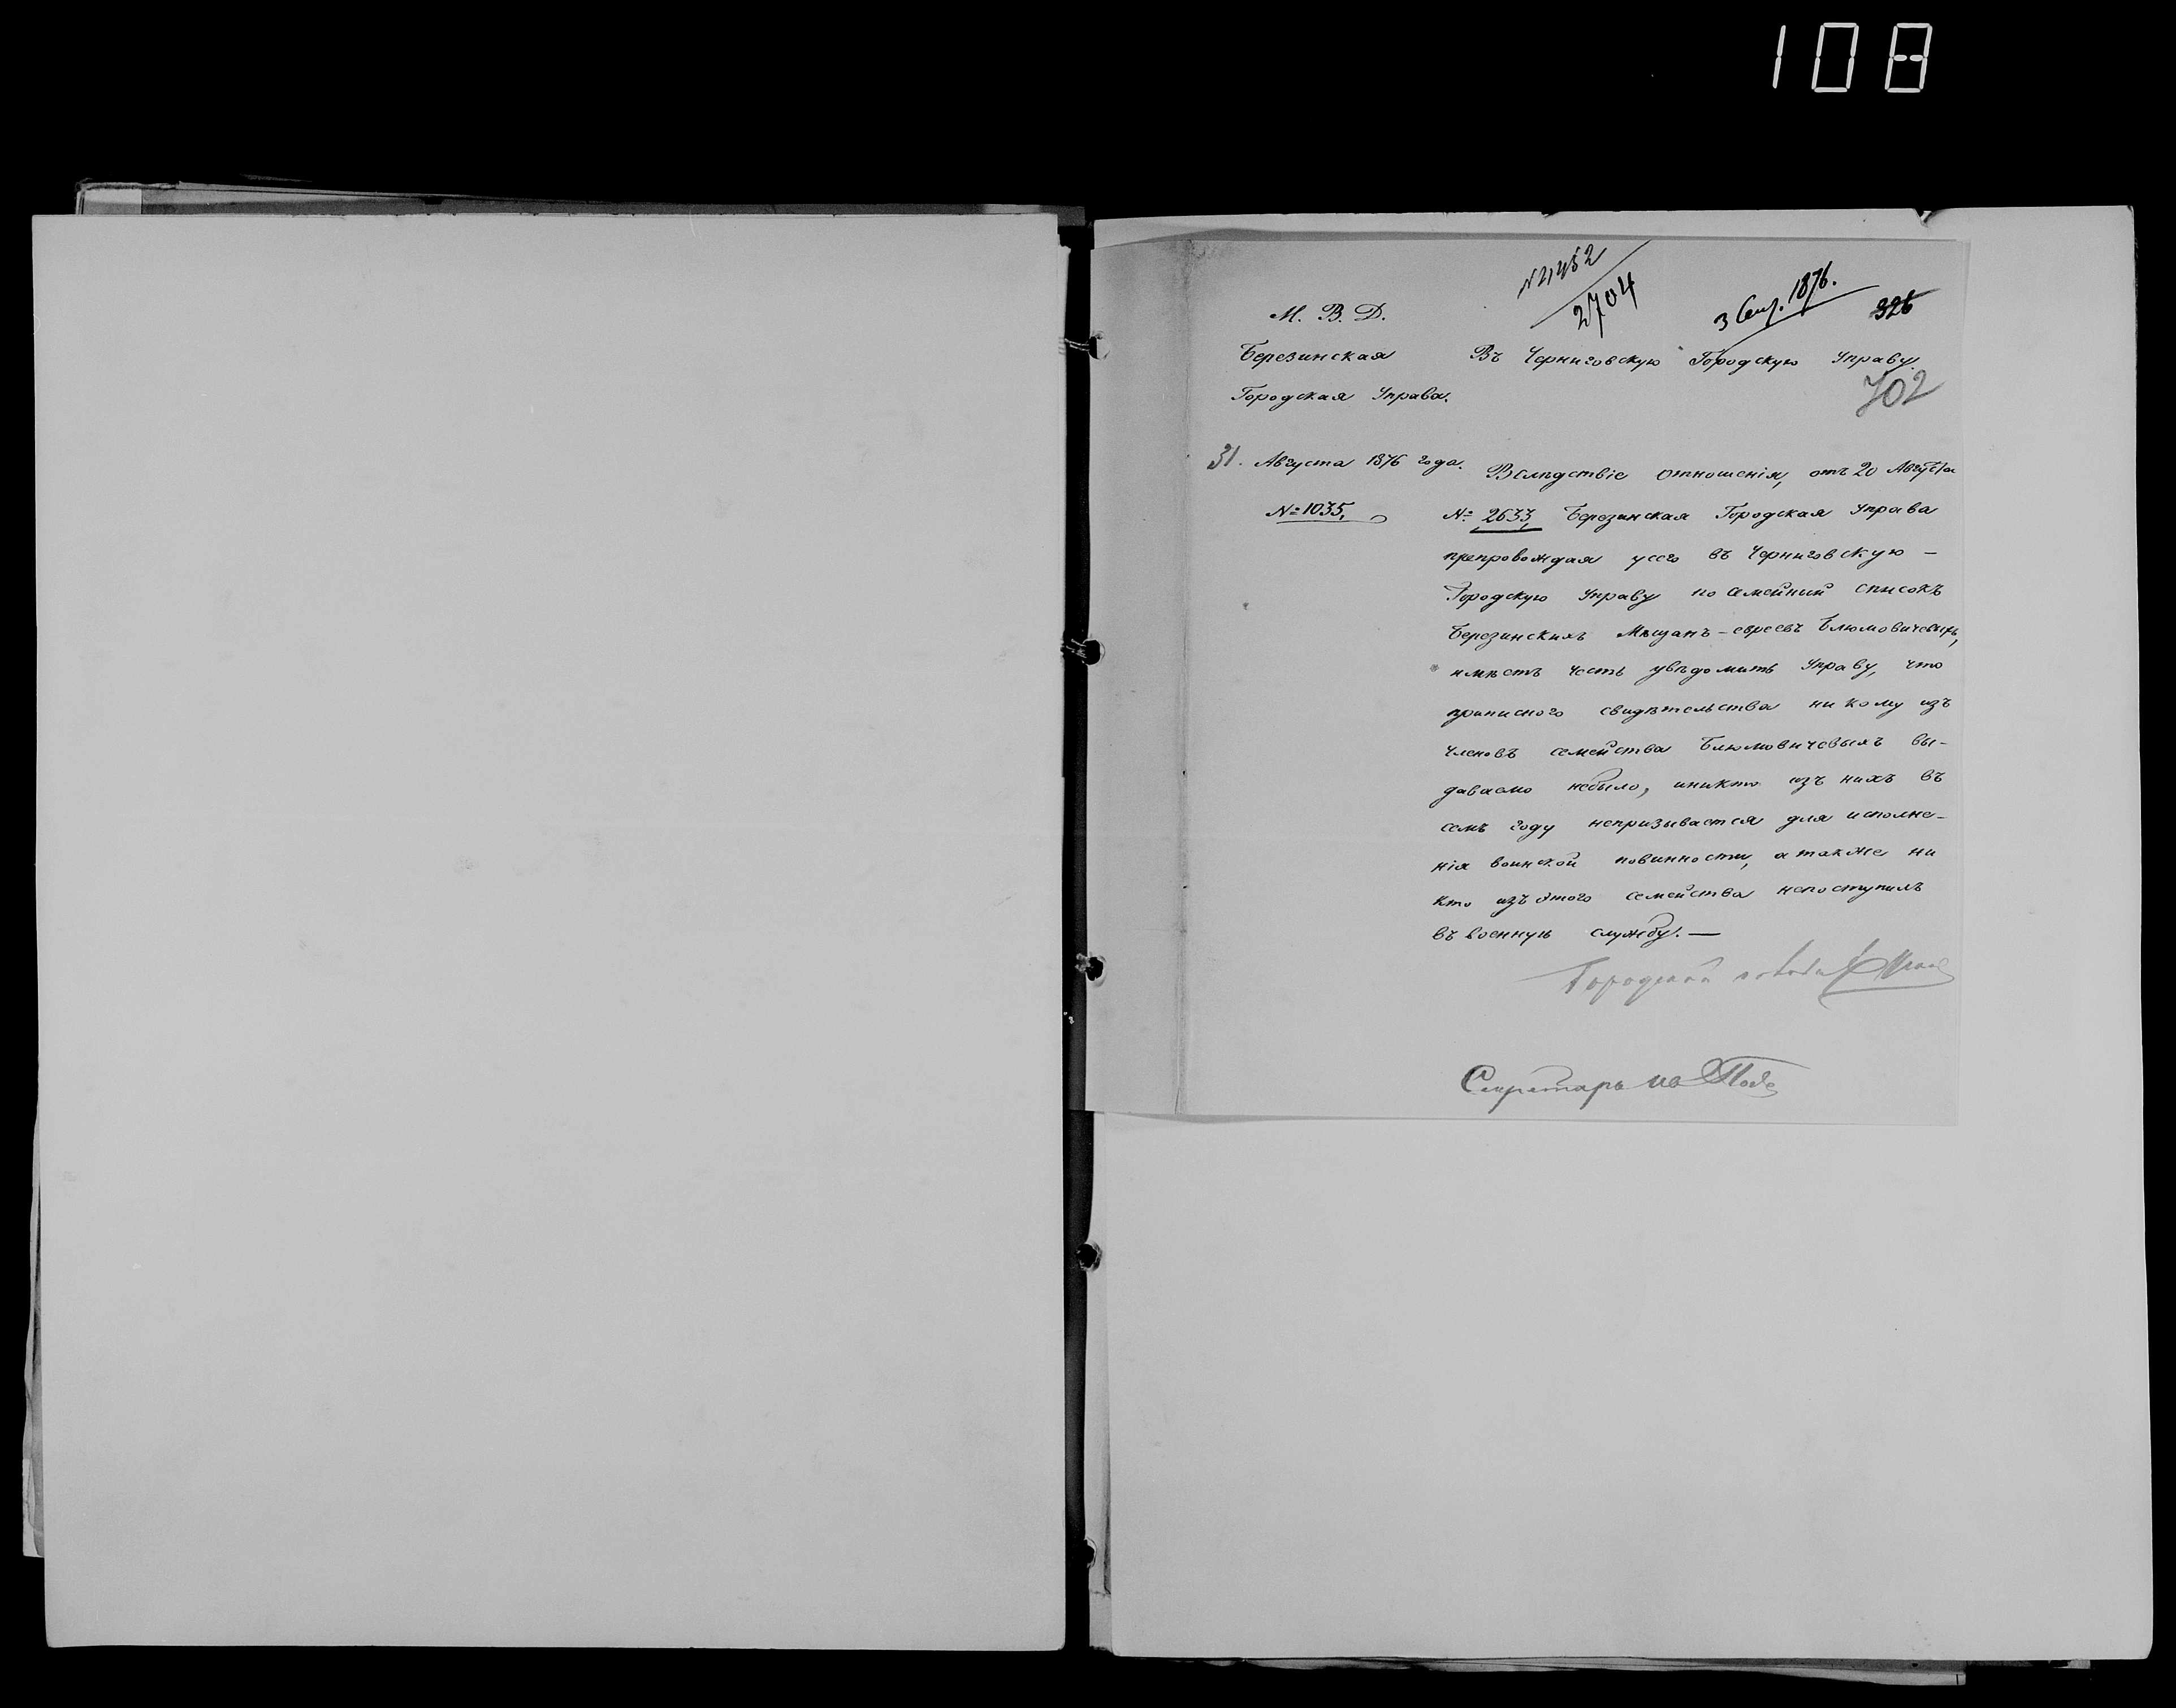 108
№ 452
2704
3 Сен. 1876.
326
М. В. Д.
Березинская
Городская Управа.
Въ Черниговскую Городскую Управу.
702
31. Августа 1876 года.
№ 1035.
Вслѣдствіе отношенія, отъ 20 Августа
№ 2633, Березинская Городская Управа
препровождая усего въ Черниговскую —
Городскую Управу посемейный списокъ
Березинскихъ Мѣщанъ-евреевъ Блюмовичевыхъ,
имѣетъ честь увѣдомить Управу, что
приписного свидѣтельства никому изъ
членовъ семейства Блюмовичевыхъ вы-
даваемо небыло, иникто изъ нихъ въ
семъ году непризывается для исполне-
нія воинской повинности, атакже ни
кто изъ этого семейства непоступилъ
въ военную службу. —
Городской голова
Секретарь